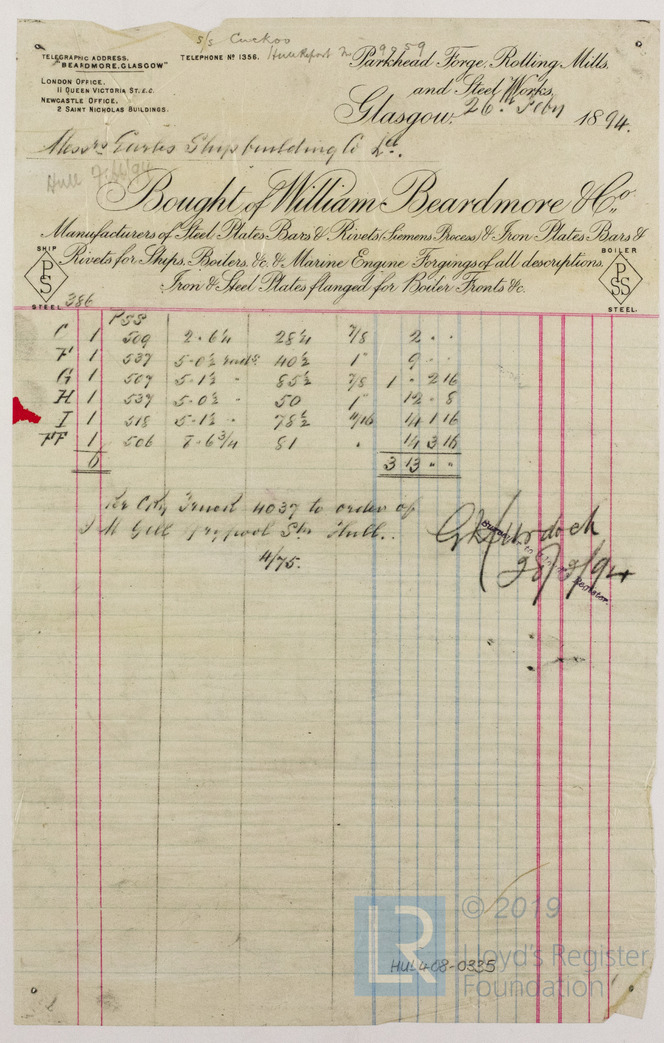 s/s Cuckoo
Hull Report No 9059
TELEGRAPHIC ADDRESS,
"BEARDMORE, GLASGOW"
TELEPHONE No 1356.
LONDON OFFICE,
11 QUEEN VICTORIA ST. E.C.
NEWCASTLE OFFICE,
2 SAINT NICHOLAS BUILDINGS.
Parkhead Forge, Rolling Mills,
and Steel Works,
Glasgow, 26th Feby 1894.
Messrs Earles Shipbuilding Co Ld.
Hull
Bought of William Beardmore & Co.
Manufacturers of Steel Plates Bars & Rivets (Siemens Process) & Iron Plates Bars &
Rivets for Ships, Boilers, &c. & Marine Engine Forgings of all descriptions.
Iron & Steel Plates flanged for Boiler Fronts &c.
SHIP
PS
STEEL
BOILER
PSS
STEEL.
386
PSS
1 509 2·6¼ 28¼ 7/8 2 · ·
F 1 537 5·0½ 40½ 1" 9 · ·
G 1 507 5·1½ " 85½ 7/8 1 · 2 16
H 1 539 5·0½ " 50 1" 12 · 8
I 1 518 5·1½ " 78½ 11/16 14 1 16
FF 1 506 7·6¾ 81 " 14 3 16
6 3 13 " "
Truck 4037 to order of
Gill Stn Hull.
4/75.
G Murdoch
28/2/94
Register.
© 2019
LR
Lloyd's Register
Foundation
HUL408-0335